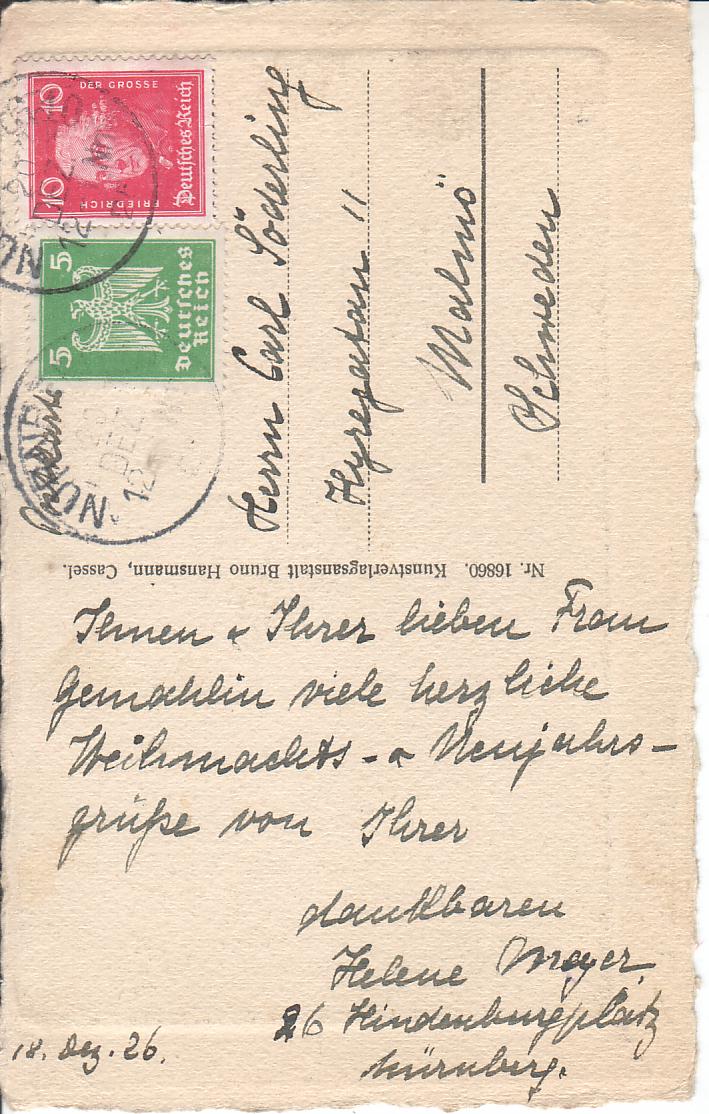 DER GROSSE
10 10
FRIEDRICH
Deutsches Reich
5 5
Deutsches
Reich
Herrn Carl Söderling
Hyregatan 11
Malmö
Schweden
Nr. 16860. Kunstverlagsanstalt Bruno Hansmann, Cassel.
Ihnen & Ihrer lieben Frau
Gemahlin viele herzliche
Weihnachts- & Neujahrs-
grüße von Ihrer
dankbaren
Helene Meyer
26 Hindenburgplatz
Nürnberg.
18. Dez. 26.